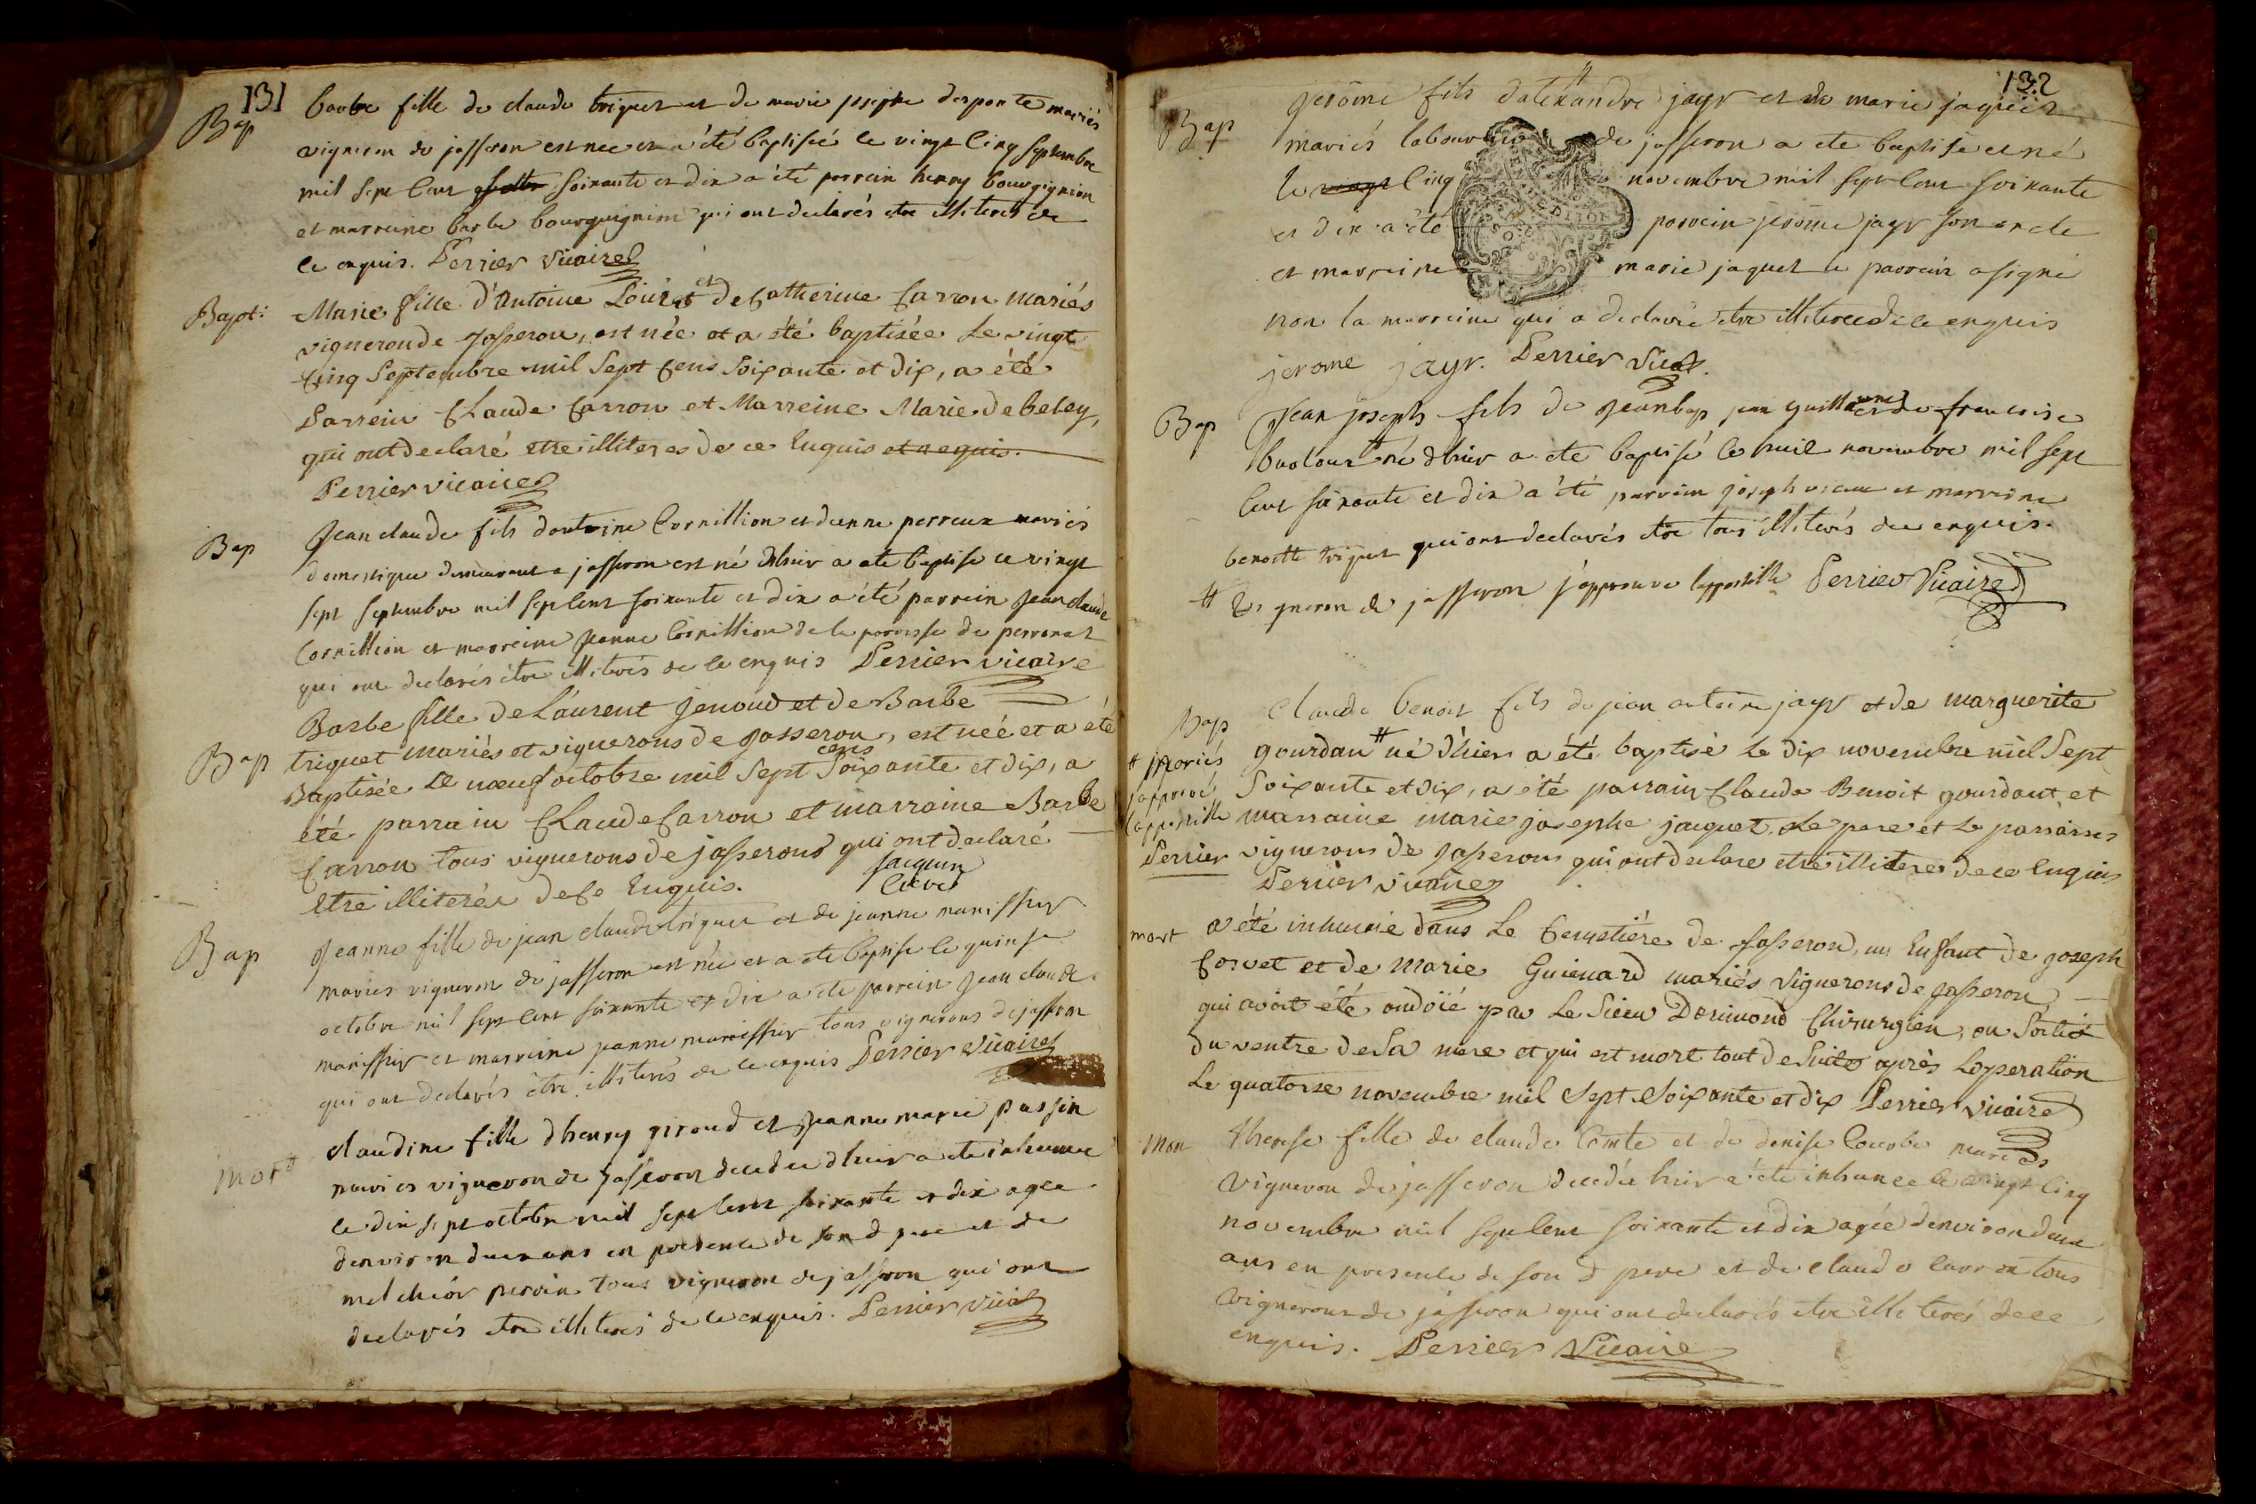 131
Bap
barbe fille de claude triquet et de marie josephe desponte mariés
vigneron de jasseron est nee et a été baptisée le vingt cinq septembre
mil sept cent soixante et dix a été parrein henry bourgignion
et marreine barbe bourguignion qui ont declarés etre illiterés de
ce enquis. Perrier vicaire
Bapt:
Marie fille d'Antoine et de Catherine Carron mariés
vigneron de Jasseron, est née et a été baptisée le vingt
cinq Septembre mil Sept cens Soixante et dix, a été
Parrein Claude Carron et Marreine Marie debeley,
qui ont declaré etre illiteres de ce Enquis et requis.
Perrier vicaire
Bap
Jean claude fils dantoine Cornillion et denne perreux mariés
domestique demeurant a jasseron est né dhier a ete baptise ce vingt
sept septembre mil sept cent soixante et dix a été parrein Jean claude
Cornillion et marreine Jeanne Cornillion de la paroisse de
qui ont declarés être illiterés de ce enquis Perrier vicaire
Bap
Barbe fille de Laurent Jenoud et de Barbe
triquet mariés et vignerons de Jasseron, est née et a été
Baptisée le nœuf octobre mil Sept cens Soixante et dix, a
été parrain Claude Carron et marraine Barbe
Carron tous vignerons de jasserond qui ont declaré
etre illiterés de Ce Enquis.
Bap
Jeanne fille de jean claude triquet et de jeanne manissier
mariés vigneron de jasseron est née et a ete baptise le quinse
octobre mil sept cent soixante et dix a ete parrein Jean claude
manissier et marreine jeanne manissier tous vignerons de jasseron
qui ont declarés être illiterés de ce enquis Perrier vicaire
mort
claudine fille dhenry giroud et jeanne marie pussin
mariés vigneron de jasseron decedee dhier a ete inhumee
le dix sept octobre mil sept cent soixante et dix agee
denviron deux ans en presence de son d pere et de
melchior perrin tous vigneron de jasseron qui ont
declarés etre illiterés de ce enquis. Perrier vicaire
132
Bap
Jerôme fils dalexandre jayr et de marie jaquet
mariés de jasseron a ete baptise et né
le vingt cinq novembre mil sept cent soixante
et dix a été parrein jerôme jayr son oncle
et marreine marie jaquet le parrein a signé
non la marreine qui a declaré etre illiteree de ce enquis
jerome jayr. Perrier vicaire
Bap
Jean joseph fils de Jean bap jean guillerme et de francoise
né dhier a ete baptisé le huit novembre mil sept
cent soixante et dix a été parrein joseph et marreine
benoitte triquet qui ont declarés etre tous illiterés de ce enquis.
# vigneron de jasseron j'approuve lappostille Perrier Vicaire
Bap
Claude benoit fils de jean antoine jayr et de marguerite
gourdan # né d'hier a été baptisé le dix novembre mil Sept
Soixante et dix, a été parrain Claude Benoit gourdant, et
marraine marie josephe jacquet. le pere et le
vignerons de Jasseron qui ont declare etre illiteres de ce Enquis
Perrier vicaire
# mariés
japprové
lappostille
Perrier
mort
a été inhumé dans le Cemetière de Jasseron, un Enfant de Joseph
Corvet et de Marie Guienard mariés vignerons de Jasseron,
qui avoit été ondoïé par le Sieur Dorimond Chirurgien, ou Sortit
du ventre de Sa mere et qui est mort tout de Suite après L'operation
le quatorse novembre mil Sept Soixante et dix Perrier vicaire
mort
therese fille de claude Comte et de denise Courbe mariés
vigneron de jasseron decedée hier a été inhumee le vingt cinq
novembre mil sept cent soixante et dix agée denviron deux
ans en presence de son d pere et de claude carron tous
vignerons de jasseron qui ont declarés etre illiterés de ce
enquis. Perrier Vicaire